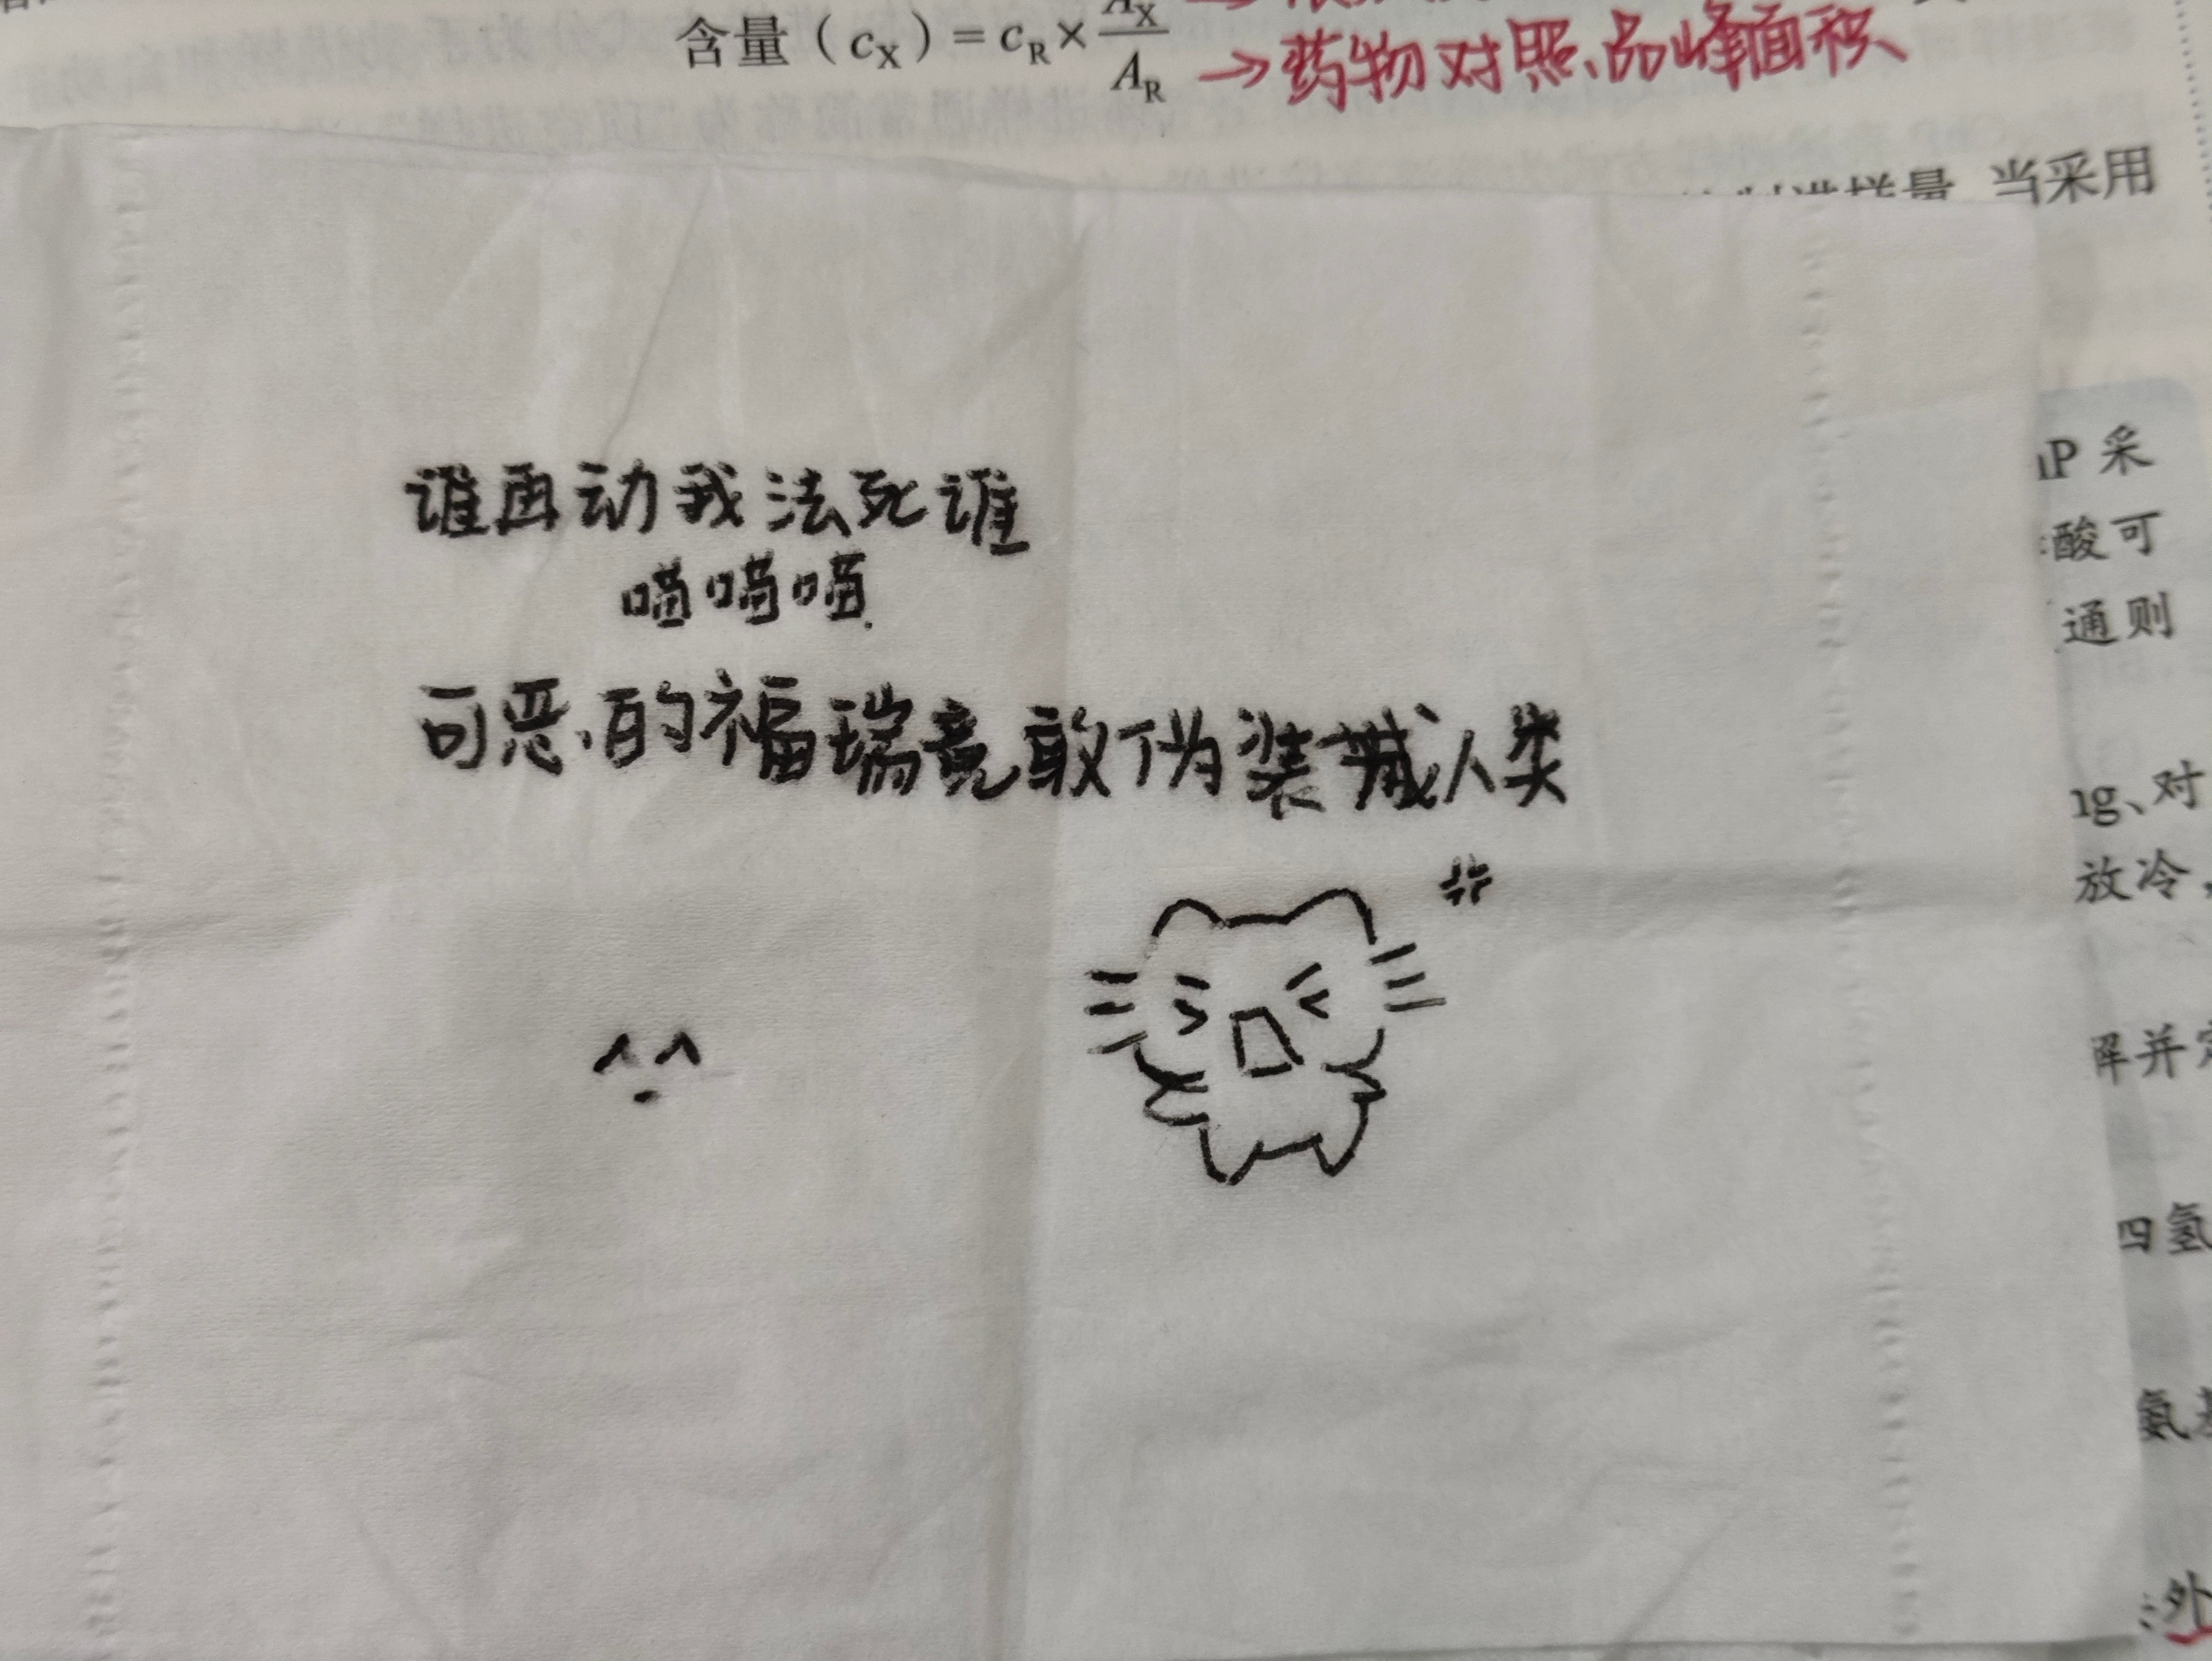 含量（cX）= cR × AX/AR
→药物对照品峰面积
当采用
谁再动我法死谁
喵喵喵.
可恶的福瑞竟敢伪装成人类
P 采
酸可
通则
g、对
放冷，
解并定
四氢
氨基
处